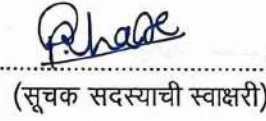 (सूचक सदस्याची स्वाक्षरी)